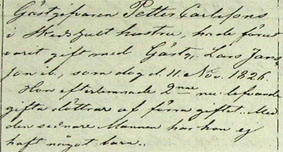 Gästgifvaren Petter Carlssons
i Skedhult hustru, hade förut
varit gift med Gästg. Lars Jans
son d., som dog d. 11. Nov. 1826.
Hon efterlemnade 2nne nu lefvande
gifta döttrar af förra giftet. Med
den sednare Mannen har hon ej
haft något barn.